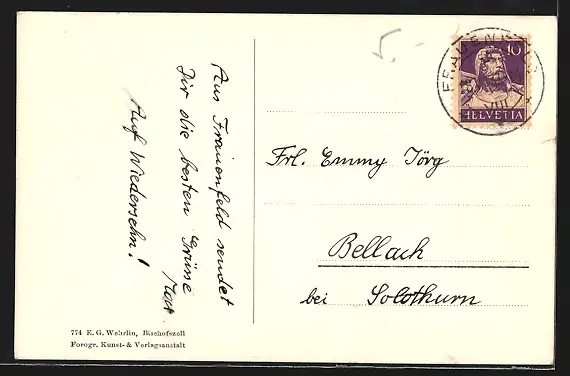 Aus Frauenfeld sendet
Dir die besten Grüsse
Auf Wiedersehn!
774 E. G. Wehrlin, Bischofszell
Forogr. Kunst- & Verlagsanstalt
5.-
FRAUENFELD
VIII
10
HELVETIA
Frl. Emmy Jörg
Bellach
bei Solothurn